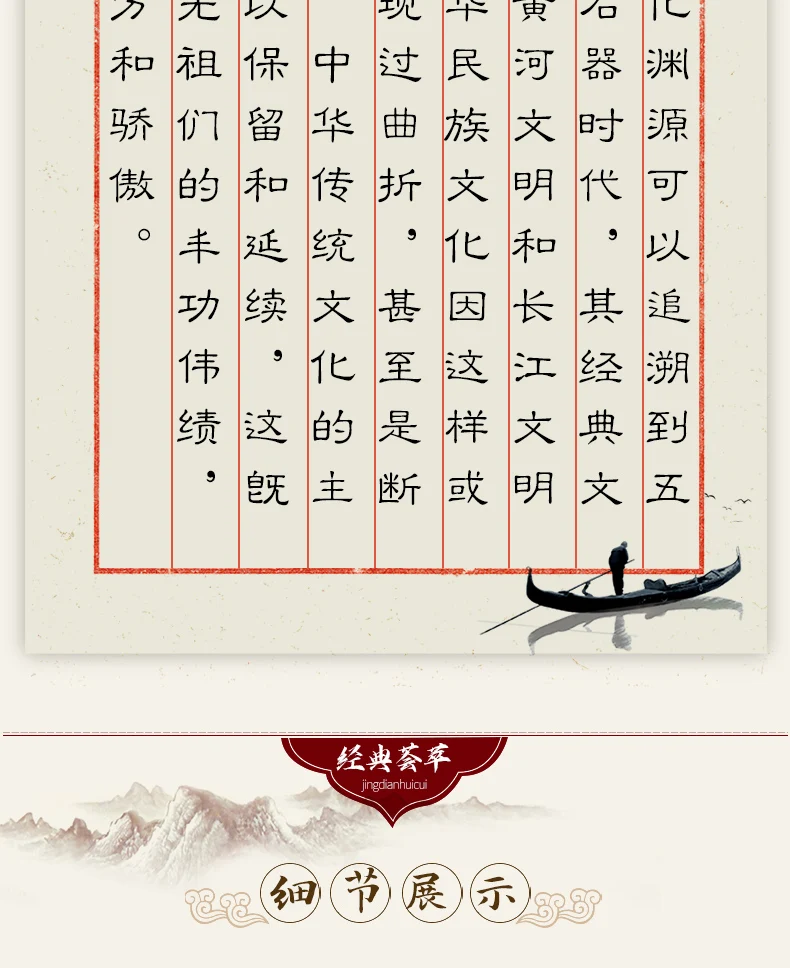 化渊源可以追溯到五
石器时代，其经典文
黄河文明和长江文明
华民族文化因这样或
现过曲折，甚至是断
中华传统文化的主
以保留和延续，这既
先祖们的丰功伟绩，
和骄傲。
经典荟萃
jingdianhuicui
细节展示